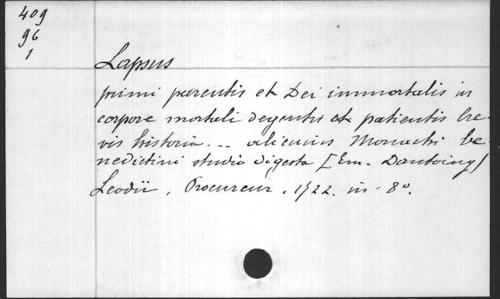 409
96
1
Lapsus
primi parentis et Dei immortalis in
corpore mortali degentis et patientis bre
vis historia ... alicuius Monachi be
nedictini studio digesta [Em. Dantoing]
Leodii, Procureur, 1722. in-8°.